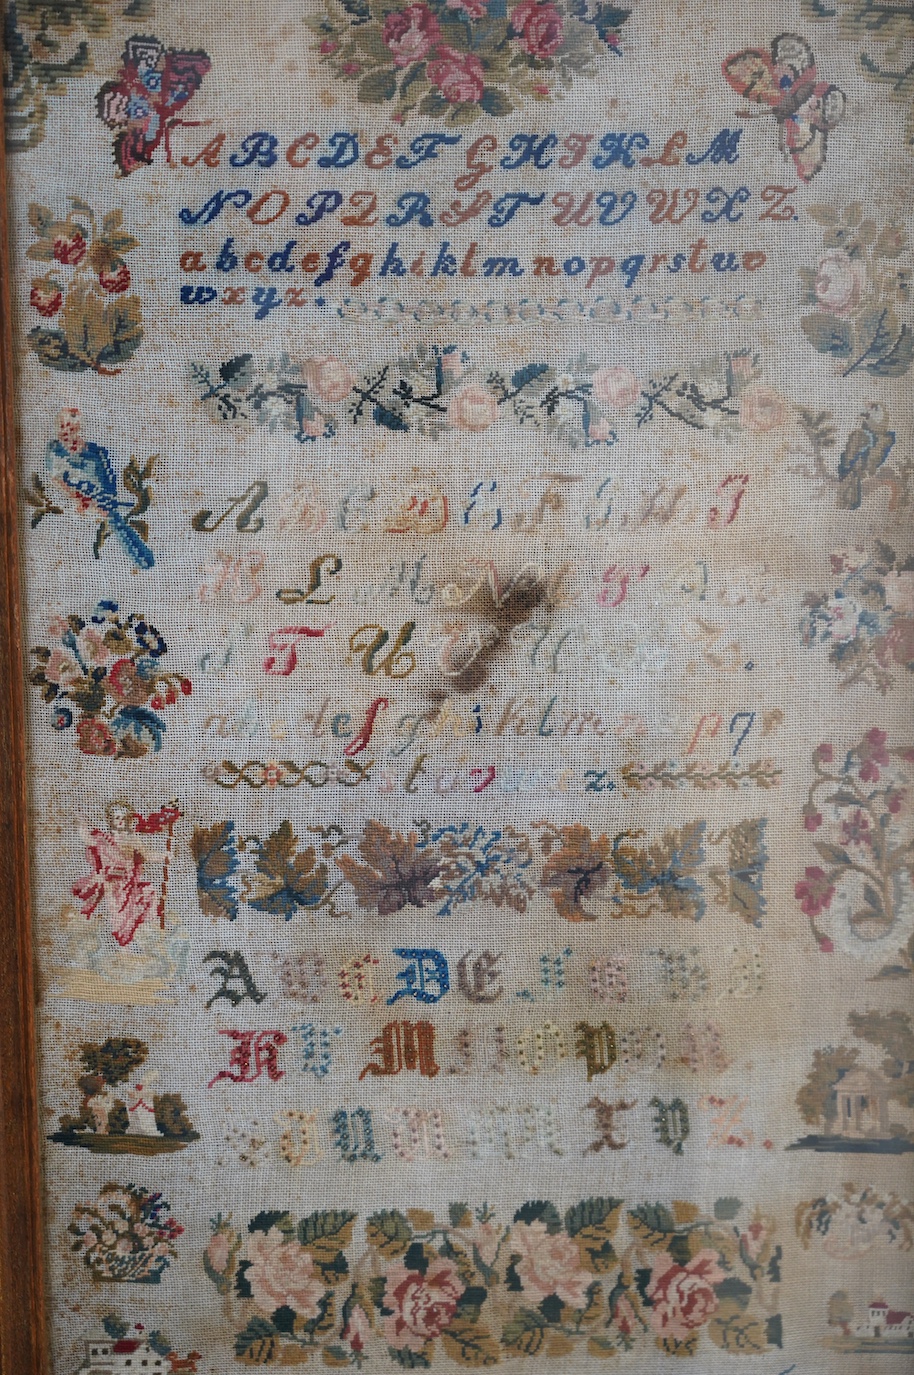 A B C D E F G H I K L M
N O P Q R S T U V W X Z
a b c d e f g h i k l m n o p q r s t u v
w x y z .
A B C D E F G H I
K L M N P Q
S T U V W X
a b c d e f g h i k l m n o p q r
s t u v w x z .
A B C D E F G H I
K L M N O P Q R
S T U V W X Y Z .